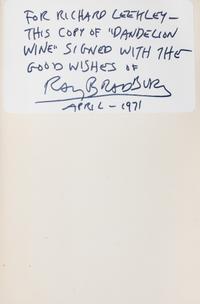 FOR RICHARD LEEHLEY—
THIS COPY OF "DANDELION
WINE" SIGNED WITH THE
GOOD WISHES OF
RAY BRADBURY
APRIL — 1971